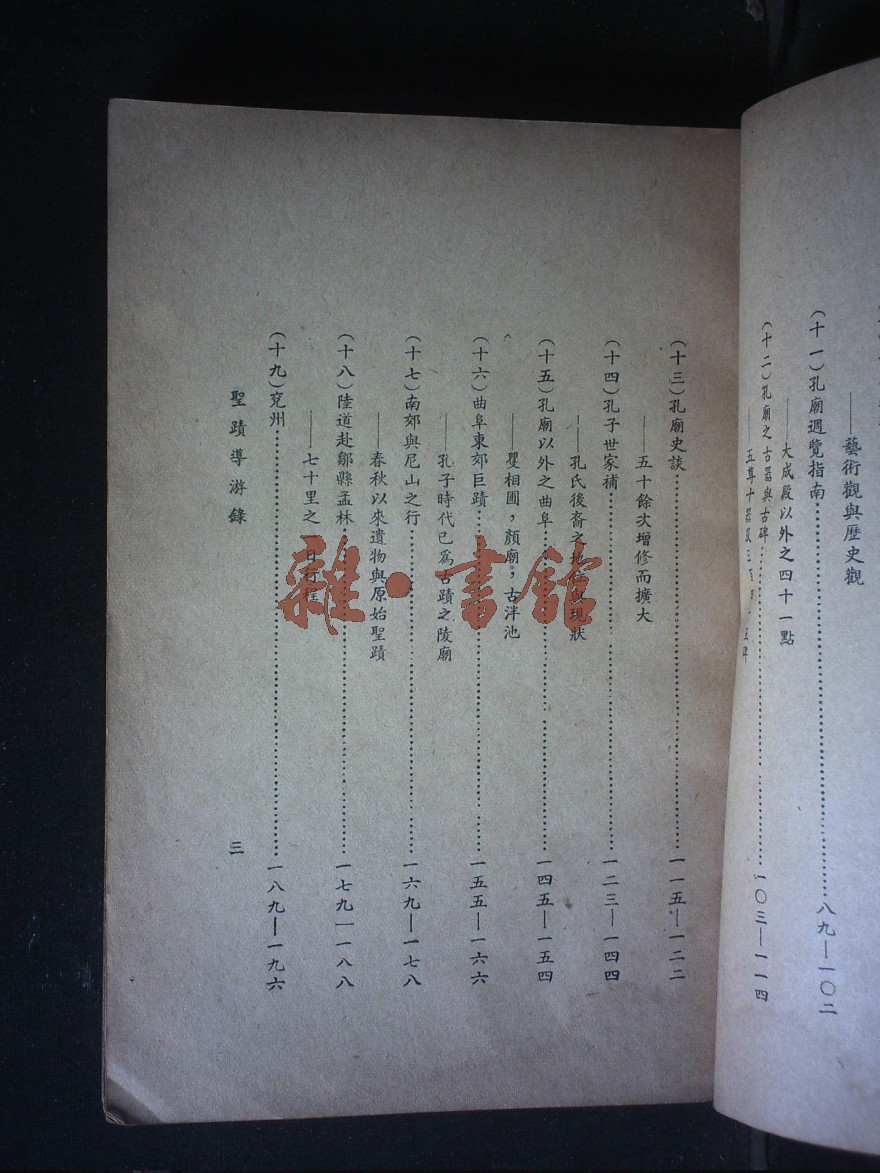 ——藝術觀與歷史觀
(十一)孔廟週覽指南……八九—一〇二
——大成殿以外之四十一點
(十二)孔廟之古器與古碑……一〇三—一一四
——五尊十器及三
(十三)孔廟史談……一一五—一二二
——五十餘次增修而擴大
(十四)孔子世家補……一二三—一四四
——孔氏後裔之地位與現狀
(十五)孔廟以外之曲阜……一四五—一五四
——矍相圃,顏廟,古泮池
(十六)曲阜東郊巨蹟……一五五—一六六
——孔子時代已爲古蹟之陵廟
(十七)南郊與尼山之行……一六九—一七八
——春秋以來遺物與原始聖蹟
(十八)陸道赴鄒縣孟林……一七九—一八八
——七十里之一日行程
(十九)兗州……一八九—一九六
聖蹟導游錄
三
雜·書館